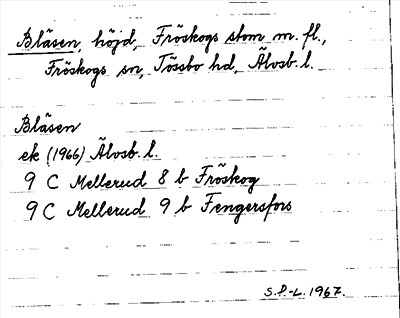 Bläsen, höjd, Fröskogs stom m. fl.,
Fröskogs sn, Tössbo hd, Älvsb. l.
Bläsen
ek (1966) Älvsb. l.
9 C Mellerud 8 b Fröskog
9 C Mellerud 9 b Fengersfors
S.P.-L. 1967.